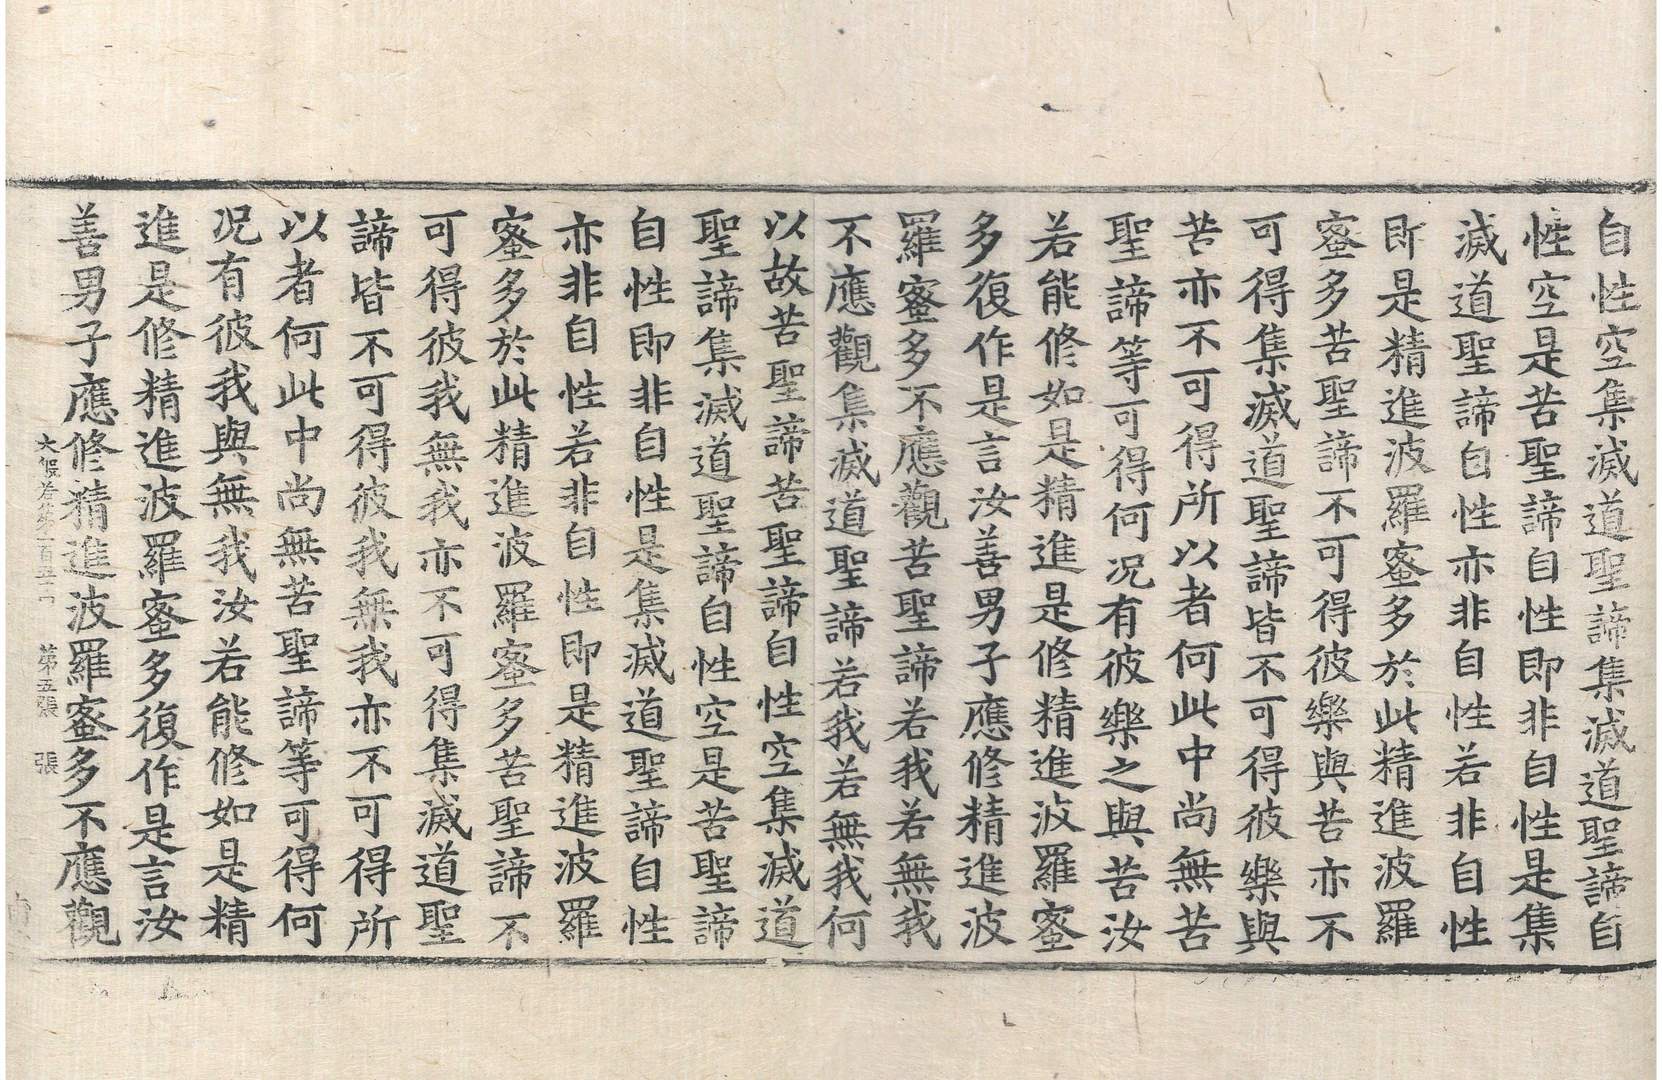 自性空集滅道聖諦集滅道聖諦自
性空是苦聖諦自性即非自性是集
滅道聖諦自性亦非自性若非自性
即是精進波羅蜜多於此精進波羅
蜜多苦聖諦不可得彼樂與苦亦不
可得集滅道聖諦皆不可得彼樂與
苦亦不可得所以者何此中尚無苦
聖諦等可得何况有彼樂之與苦汝
若能修如是精進是修精進波羅蜜
多復作是言汝善男子應修精進波
羅蜜多不應觀苦聖諦若我若無我
不應觀集滅道聖諦若我若無我何
以故苦聖諦苦聖諦自性空集滅道
聖諦集滅道聖諦自性空是苦聖諦
自性即非自性是集滅道聖諦自性
亦非自性若非自性即是精進波羅
蜜多於此精進波羅蜜多苦聖諦不
可得彼我無我亦不可得集滅道聖
諦皆不可得彼我無我亦不可得所
以者何此中尚無苦聖諦等可得何
况有彼我與無我汝若能修如是精
進是修精進波羅蜜多復作是言汝
善男子應修精進波羅蜜多不應觀
大般若第一百五 第五張 張